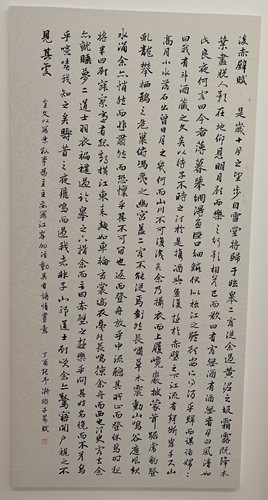 後赤壁賦 是歲十月之望步自雪堂將歸于臨皋二客從余過黃泥之坂霜露既降木
葉盡脫人影在地仰見明月顧而樂之行歌相答已而歎曰有客無酒有酒無肴月白風清如
此良夜何客曰今者薄暮舉網得魚巨口細鱗狀似松江之鱸顧安所得酒乎歸而謀諸婦婦
曰我有斗酒藏之久矣以待子不時之須於是攜酒與魚復遊於赤壁之下江流有聲斷岸千尺山
高月小水落石出曾日月之幾何而山川不可復識矣余乃攝衣而上履巉巖披蒙茸踞虎豹登
虬龍攀栖鶻之危巢俯馮夷之幽宮蓋二客不能從焉劃然長嘯草木震動山鳴谷應風起
水涌余亦悄然而悲肅然而恐凜乎其不可留也返而登舟放乎中流聽其所止而休焉時夜
將半四顧寂寥適有孤鶴橫江東來翅如車輪玄裳縞衣戛然長鳴掠余舟而西也須臾客去余
亦就睡夢二道士羽衣蹁躚過臨皋之下揖余而言曰赤壁之遊樂乎問其姓名俛而不答嗚
乎噫嘻我知之矣疇昔之夜飛鳴而過我者非子也耶道士顧笑余亦驚寤開戶視之不
見其處